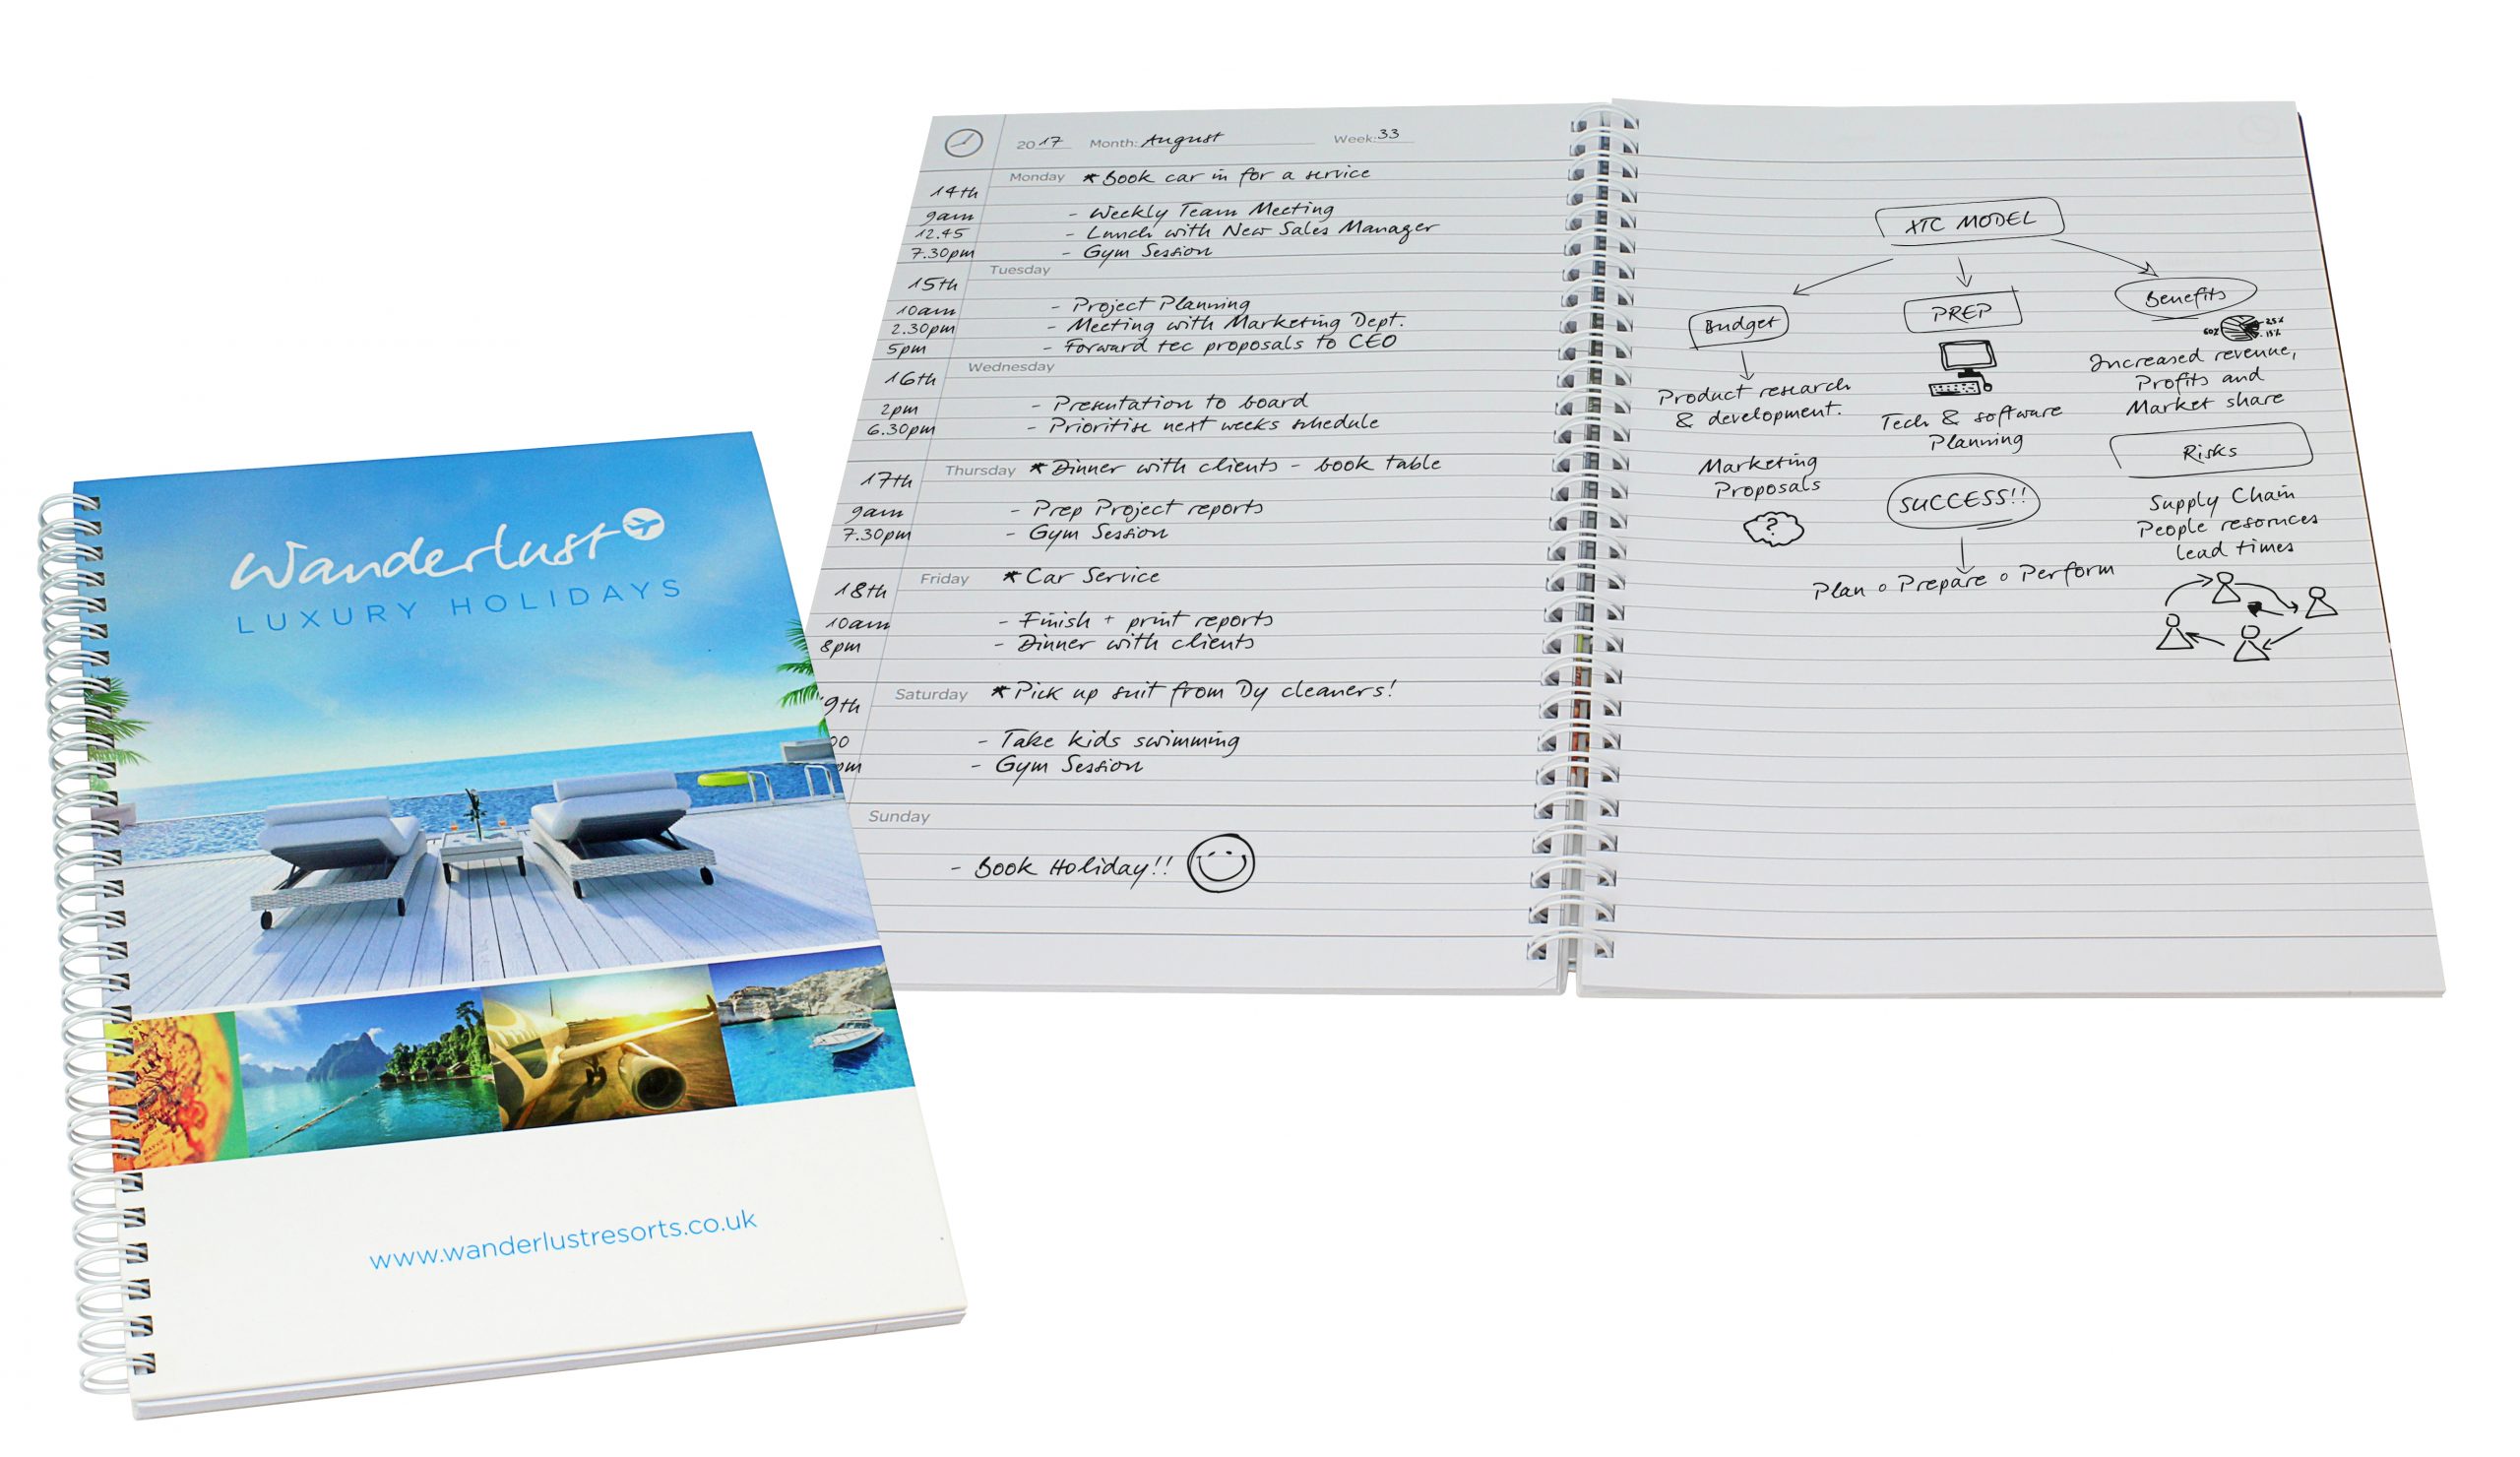 Wanderlust
LUXURY HOLIDAYS
www.wanderlustresorts.co.uk
2017 Month: August Week: 33
Monday *Book car in for a service
14th
9am - Weekly Team Meeting
12.45 - Lunch with New Sales Manager
7.30pm - Gym Session
Tuesday
15th
10am - Project Planning
2.30pm - Meeting with Marketing Dept.
5pm - Forward tec proposals to CEO
Wednesday
16th
2pm - Presentation to board
6.30pm - Prioritise next weeks schedule
Thursday *Dinner with clients - book table
17th
9am - Prep Project reports
7.30pm - Gym Session
Friday *Car Service
18th
10am - Finish + print reports
8pm - Dinner with clients
Saturday *Pick up suit from Dy cleaners!
9th
00 - Take kids swimming
pm - Gym Session
Sunday
- Book Holiday!!
XTC MODEL
Budget
Product research
& development.
Marketing
Proposals
?
PREP
Tech & software
Planning
SUCCESS!!
Plan o Prepare o Perform
Benefits
60% 25%
15%
Increased revenue,
Profits and
Market share
Risks
Supply Chain
People resoruces
lead times